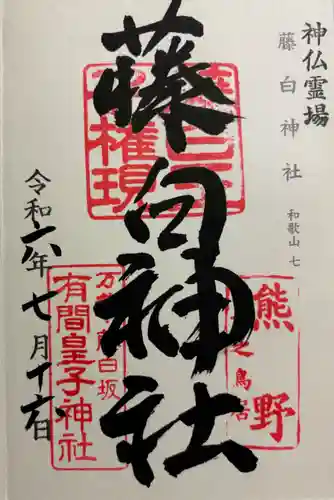 神仏霊場
藤白神社 和歌山 七
藤白神社
令和六年七月十六日
熊野
之鳥居
藤白坂
有間皇子神社